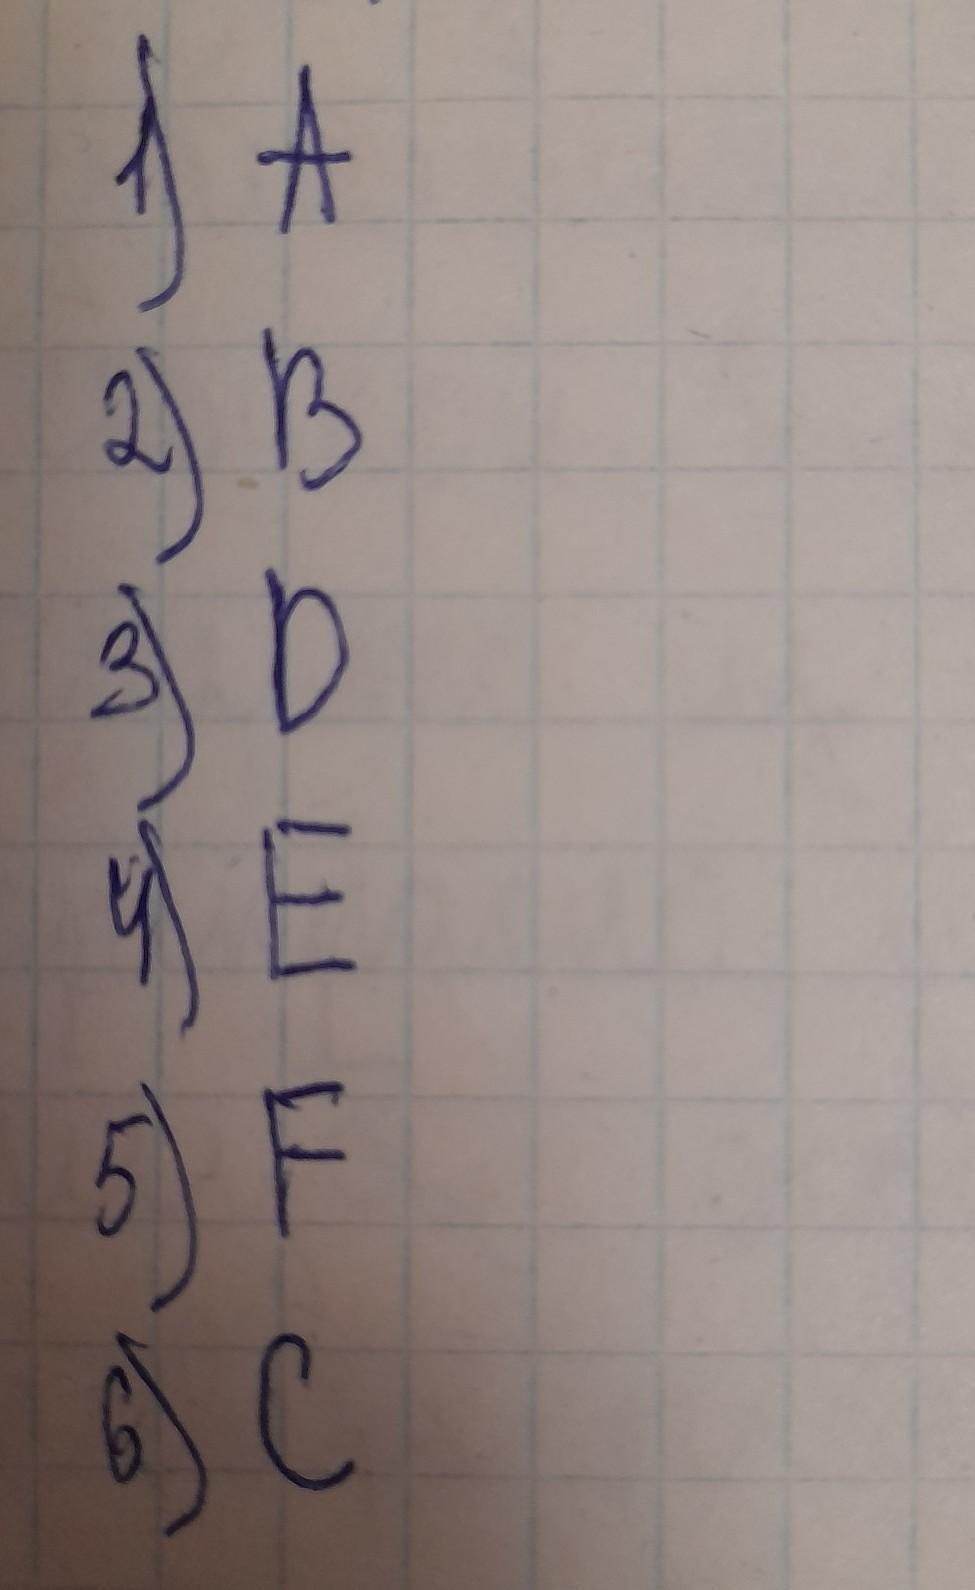 1) A
2) B
3) D
4) E
5) F
6) C